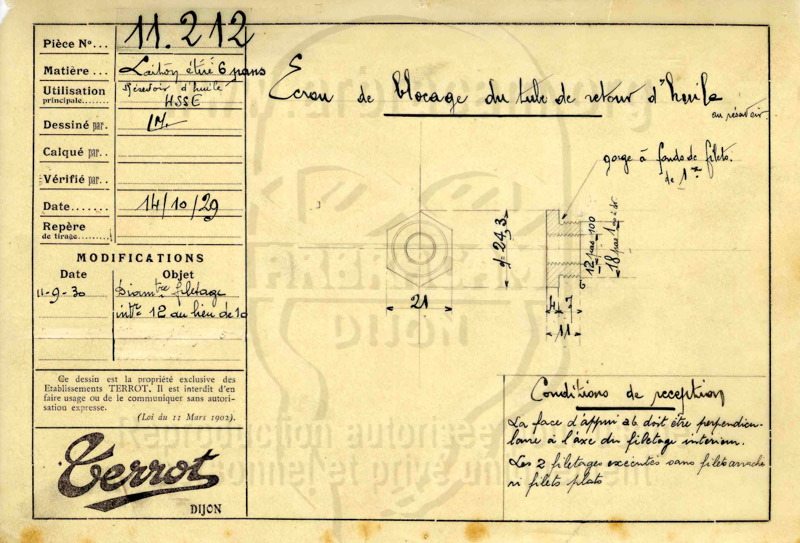 Pièce N°... 11.212
Matière... Laiton étiré 6 pans
Utilisation principale........ Réservoir d'huile
HSSE
Dessiné par.
Calqué par..
Vérifié par..
Date....... 14/10/29
Repère de tirage........
MODIFICATIONS
Date Objet
11-9-30 Diamtre filetage
intr 12 au lieu de 10
Ce dessin est la propriété exclusive des
Etablissements TERROT. Il est interdit d'en
faire usage ou de le communiquer sans autori-
sation expresse.
(Loi du 11 Mars 1902).
Terrot
DIJON
Ecrou de blocage du tube de retour d'huile
au réservoir
gorge à fonds de filets
de 1
ø 24,3
12 pas 100
18 pas 1
21
4 7
11
DIJON
Conditions de reception
La face d'appui ab doit être perpendicu-
laire à l'axe du filetage interieur.
Les 2 filetages executés sans filet arraché
ni filets plats
Reproduction autorisée
personnel et privé uniquement